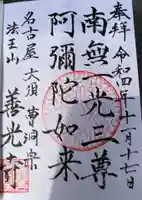 奉拝 令和四年十二月十七日
南無一光三尊
阿彌陀如来
名古屋大須 曹洞宗
法王山 善光寺